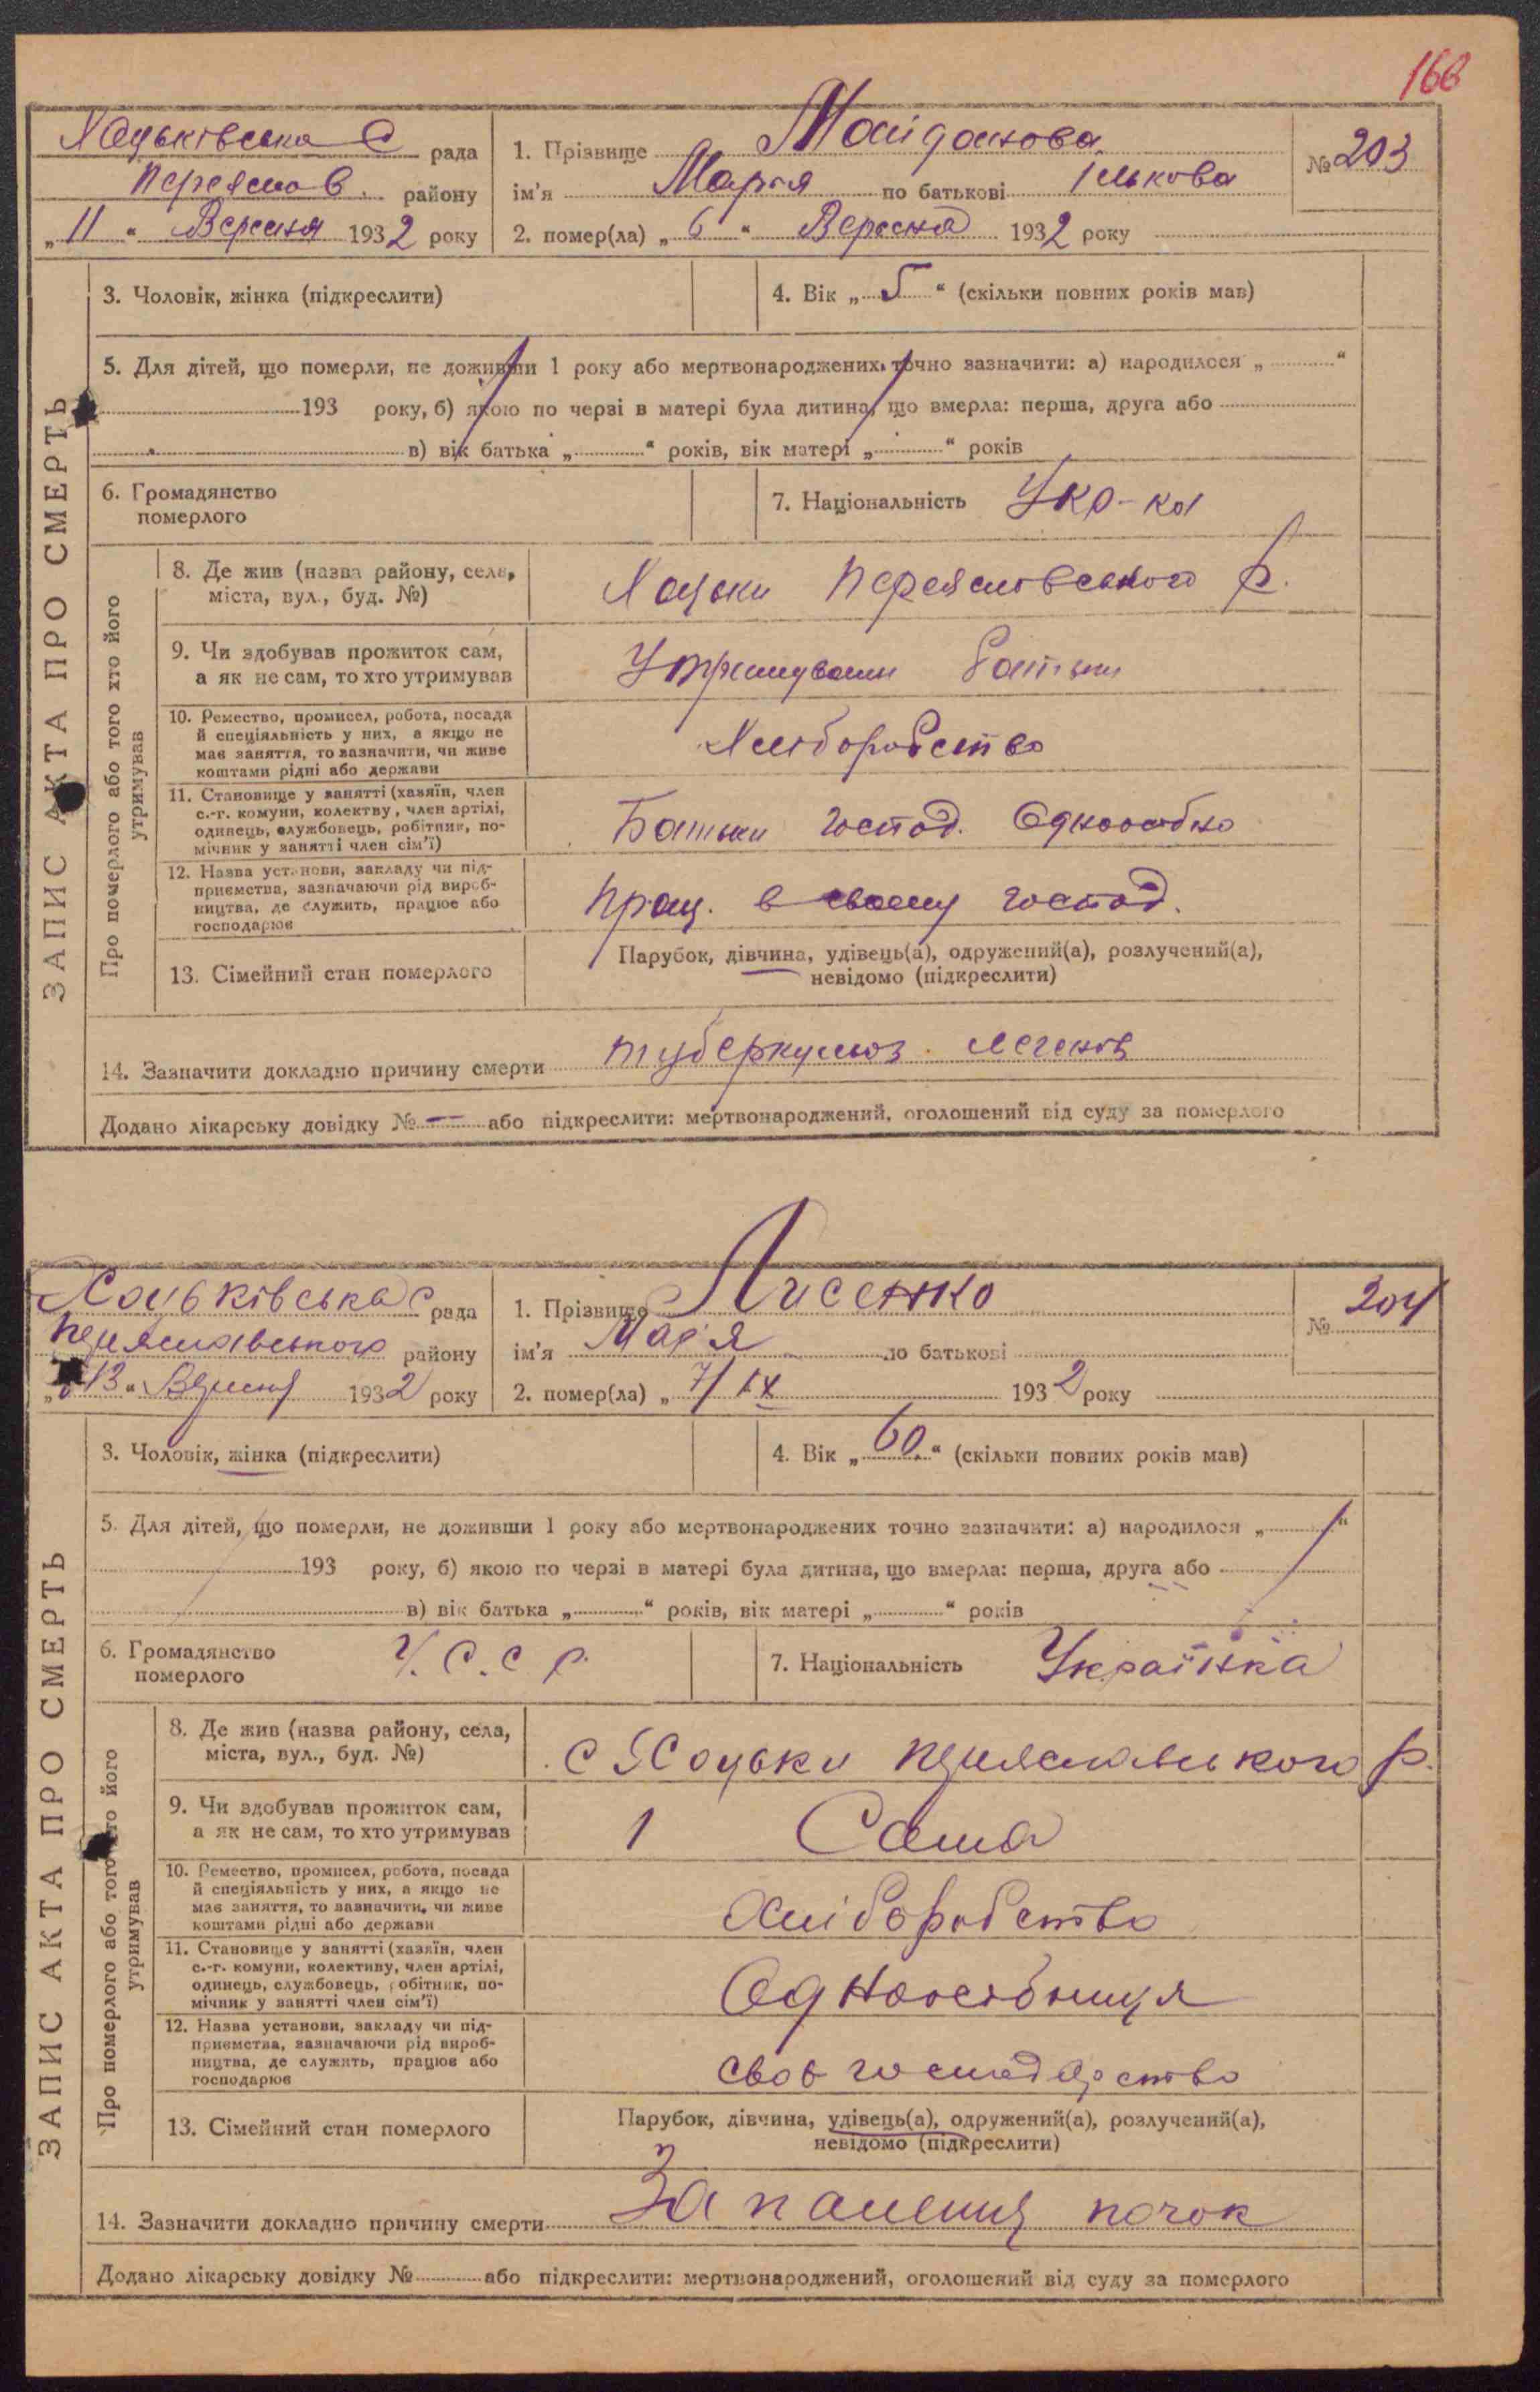 168
Хацьківська С рада
Переяслав. району
„ 11 “ Вересня 1932 року
1. Прізвище Майданова
ім'я Марія по батькові Ількова
2. помер(ла) „ 6 “ Вересня 1932 року
№ 203
ЗАПИС АКТА ПРО СМЕРТЬ
3. Чоловік, жінка (підкреслити)
4. Вік „ 5 “ (скільки повних років мав)
5. Для дітей, що померли, не доживши 1 року або мертвонароджених точно зазначити: а) народилося „ “
193 року, б) якою по черзі в матері була дитина, що вмерла: перша, друга або
в) вік батька „ “ років, вік матері „ “ років
6. Громадянство
померлого
7. Національність Укр-ка
Про померлого або того хто його
утримував
8. Де жив (назва району, села,
міста, вул., буд. №)
Хацьки Переяславського р.
9. Чи здобував прожиток сам,
а як не сам, то хто утримував
Утримували батьки
10. Ремество, промисел, робота, посада
й спеціяльність у них, а якщо не
має заняття, то зазначити, чи живе
коштами рідні або держави
Хліборобство
11. Становище у занятті (хазяїн, член
с.-г. комуни, колективу, член артілі,
одинець, службовець, робітник, по-
мічник у занятті член сім'ї)
Батьки господ. Одноособно
12. Назва установи, закладу чи під-
приємства, зазначаючи рід вироб-
ництва, де служить, працює або
господарює
Прац. в своєму господ.
13. Сімейний стан померлого
Парубок, дівчина, удівець(а), одружений(а), розлучений(а),
невідомо (підкреслити)
14. Зазначити докладно причину смерти туберкульоз легенів
Додано лікарську довідку № — або підкреслити: мертвонароджений, оголошений від суду за померлого
Хацьківська С рада
Переяславського району
„ 13 “ Вересня 1932 року
1. Прізвище Лисенко
ім'я Мар'я по батькові
2. помер(ла) „ 7/IX 1932 року
№ 204
ЗАПИС АКТА ПРО СМЕРТЬ
3. Чоловік, жінка (підкреслити)
4. Вік „ 60 “ (скільки повних років мав)
5. Для дітей, що померли, не доживши 1 року або мертвонароджених точно зазначити: а) народилося „ “
193 року, б) якою по черзі в матері була дитина, що вмерла: перша, друга або
в) вік батька „ “ років, вік матері „ “ років
6. Громадянство
померлого
У. С. С Р.
7. Національність Українка
Про померлого або того хто його
утримував
8. Де жив (назва району, села,
міста, вул., буд. №)
с Хацьки Переяславського р.
9. Чи здобував прожиток сам,
а як не сам, то хто утримував
1 Сама
10. Ремество, промисел, робота, посада
й спеціяльність у них, а якщо не
має заняття, то зазначити, чи живе
коштами рідні або держави
Хліборобство
11. Становище у занятті (хазяїн, член
с.-г. комуни, колективу, член артілі,
одинець, службовець, робітник, по-
мічник у занятті член сім'ї)
Одноосібниця
12. Назва установи, закладу чи під-
приємства, зазначаючи рід вироб-
ництва, де служить, працює або
господарює
Своє господарство
13. Сімейний стан померлого
Парубок, дівчина, удівець(а), одружений(а), розлучений(а),
невідомо (підкреслити)
14. Зазначити докладно причину смерти Запалення почок
Додано лікарську довідку № або підкреслити: мертвонароджений, оголошений від суду за померлого